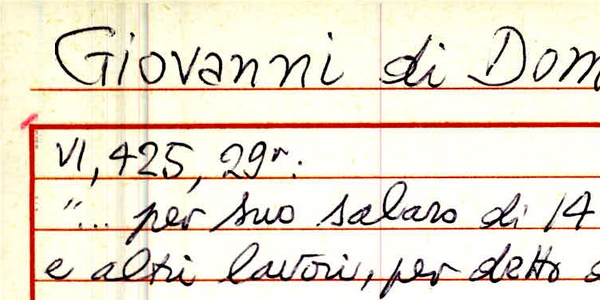 Giovanni di Dom
VI, 425, 29r:
"... per suo salaro di 14
e altri lavori, per detto